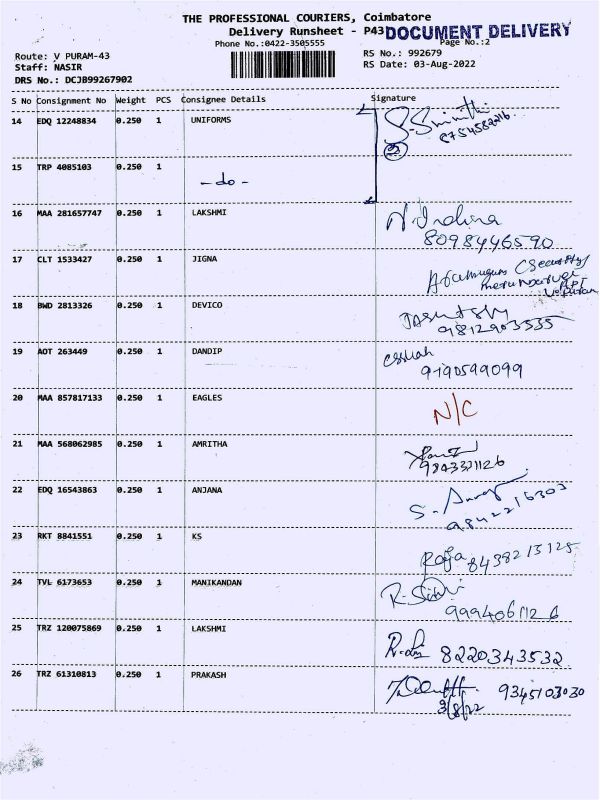 THE PROFESSIONAL COURIERS, Coimbatore
Delivery Runsheet - P43 DOCUMENT DELIVERY
Phone No.:0422-3505555 Page No.:2
Route: V PURAM-43 RS No.: 992679
Staff: NASIR RS Date: 03-Aug-2022
DRS No.: DCJB99267902
S No Consignment No Weight PCS Consignee Details Signature
14 EDQ 12248834 0.250 1 UNIFORMS
15 TRP 4085103 0.250 1
- do -
16 MAA 281657747 0.250 1 LAKSHMI N. Indira
8098446590
17 CLT 1533427 0.250 1 JIGNA
18 BWD 2813326 0.250 1 DEVICO
9812903535
19 AOT 263449 0.250 1 DANDIP
9190599099
20 MAA 857817133 0.250 1 EAGLES N/C
21 MAA 568062985 0.250 1 AMRITHA
9843321126
22 EDQ 16543863 0.250 1 ANJANA
9842216303
23 RKT 8841551 0.250 1 KS Raja 8438213125
24 TVL 6173653 0.250 1 MANIKANDAN
9994061126
25 TRZ 120075869 0.250 1 LAKSHMI 8220343532
26 TRZ 61310813 0.250 1 PRAKASH 9345103030
3/8/22